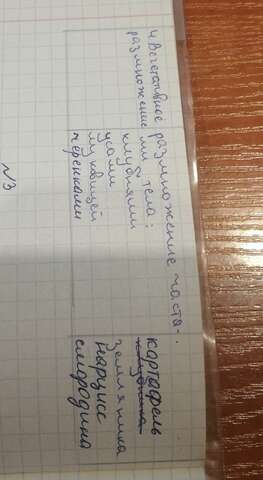 4. Вегетативное размножение часта-
размножение ми тела:
картафель
клубнями клубника
усами земляника
луковицей нарцисс
черенками смородина
№3